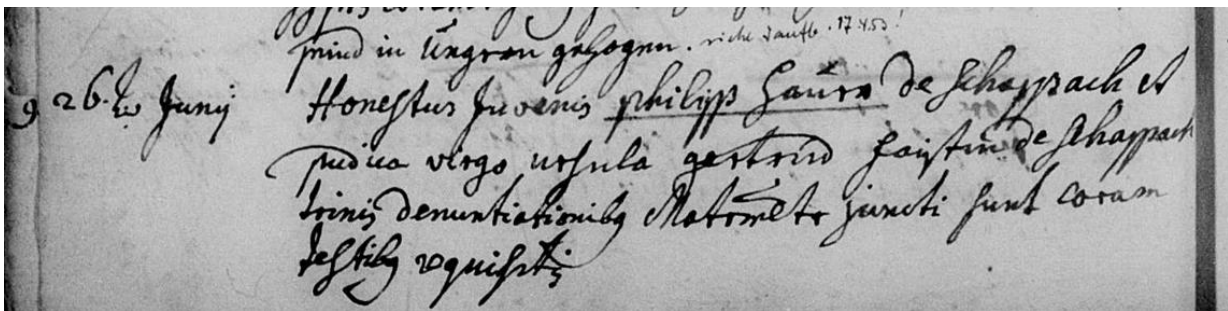 seind in Ungren gezogen. siehe Taufb. 17.4.53!
9 26. Junij Honestus Juvenis philipp Haŭer de Schappach et
pudica virgo urshula gertrud faistin de schappach
trinis denuntiationibq Matrimltr juncti sunt coram
testibq requisitis